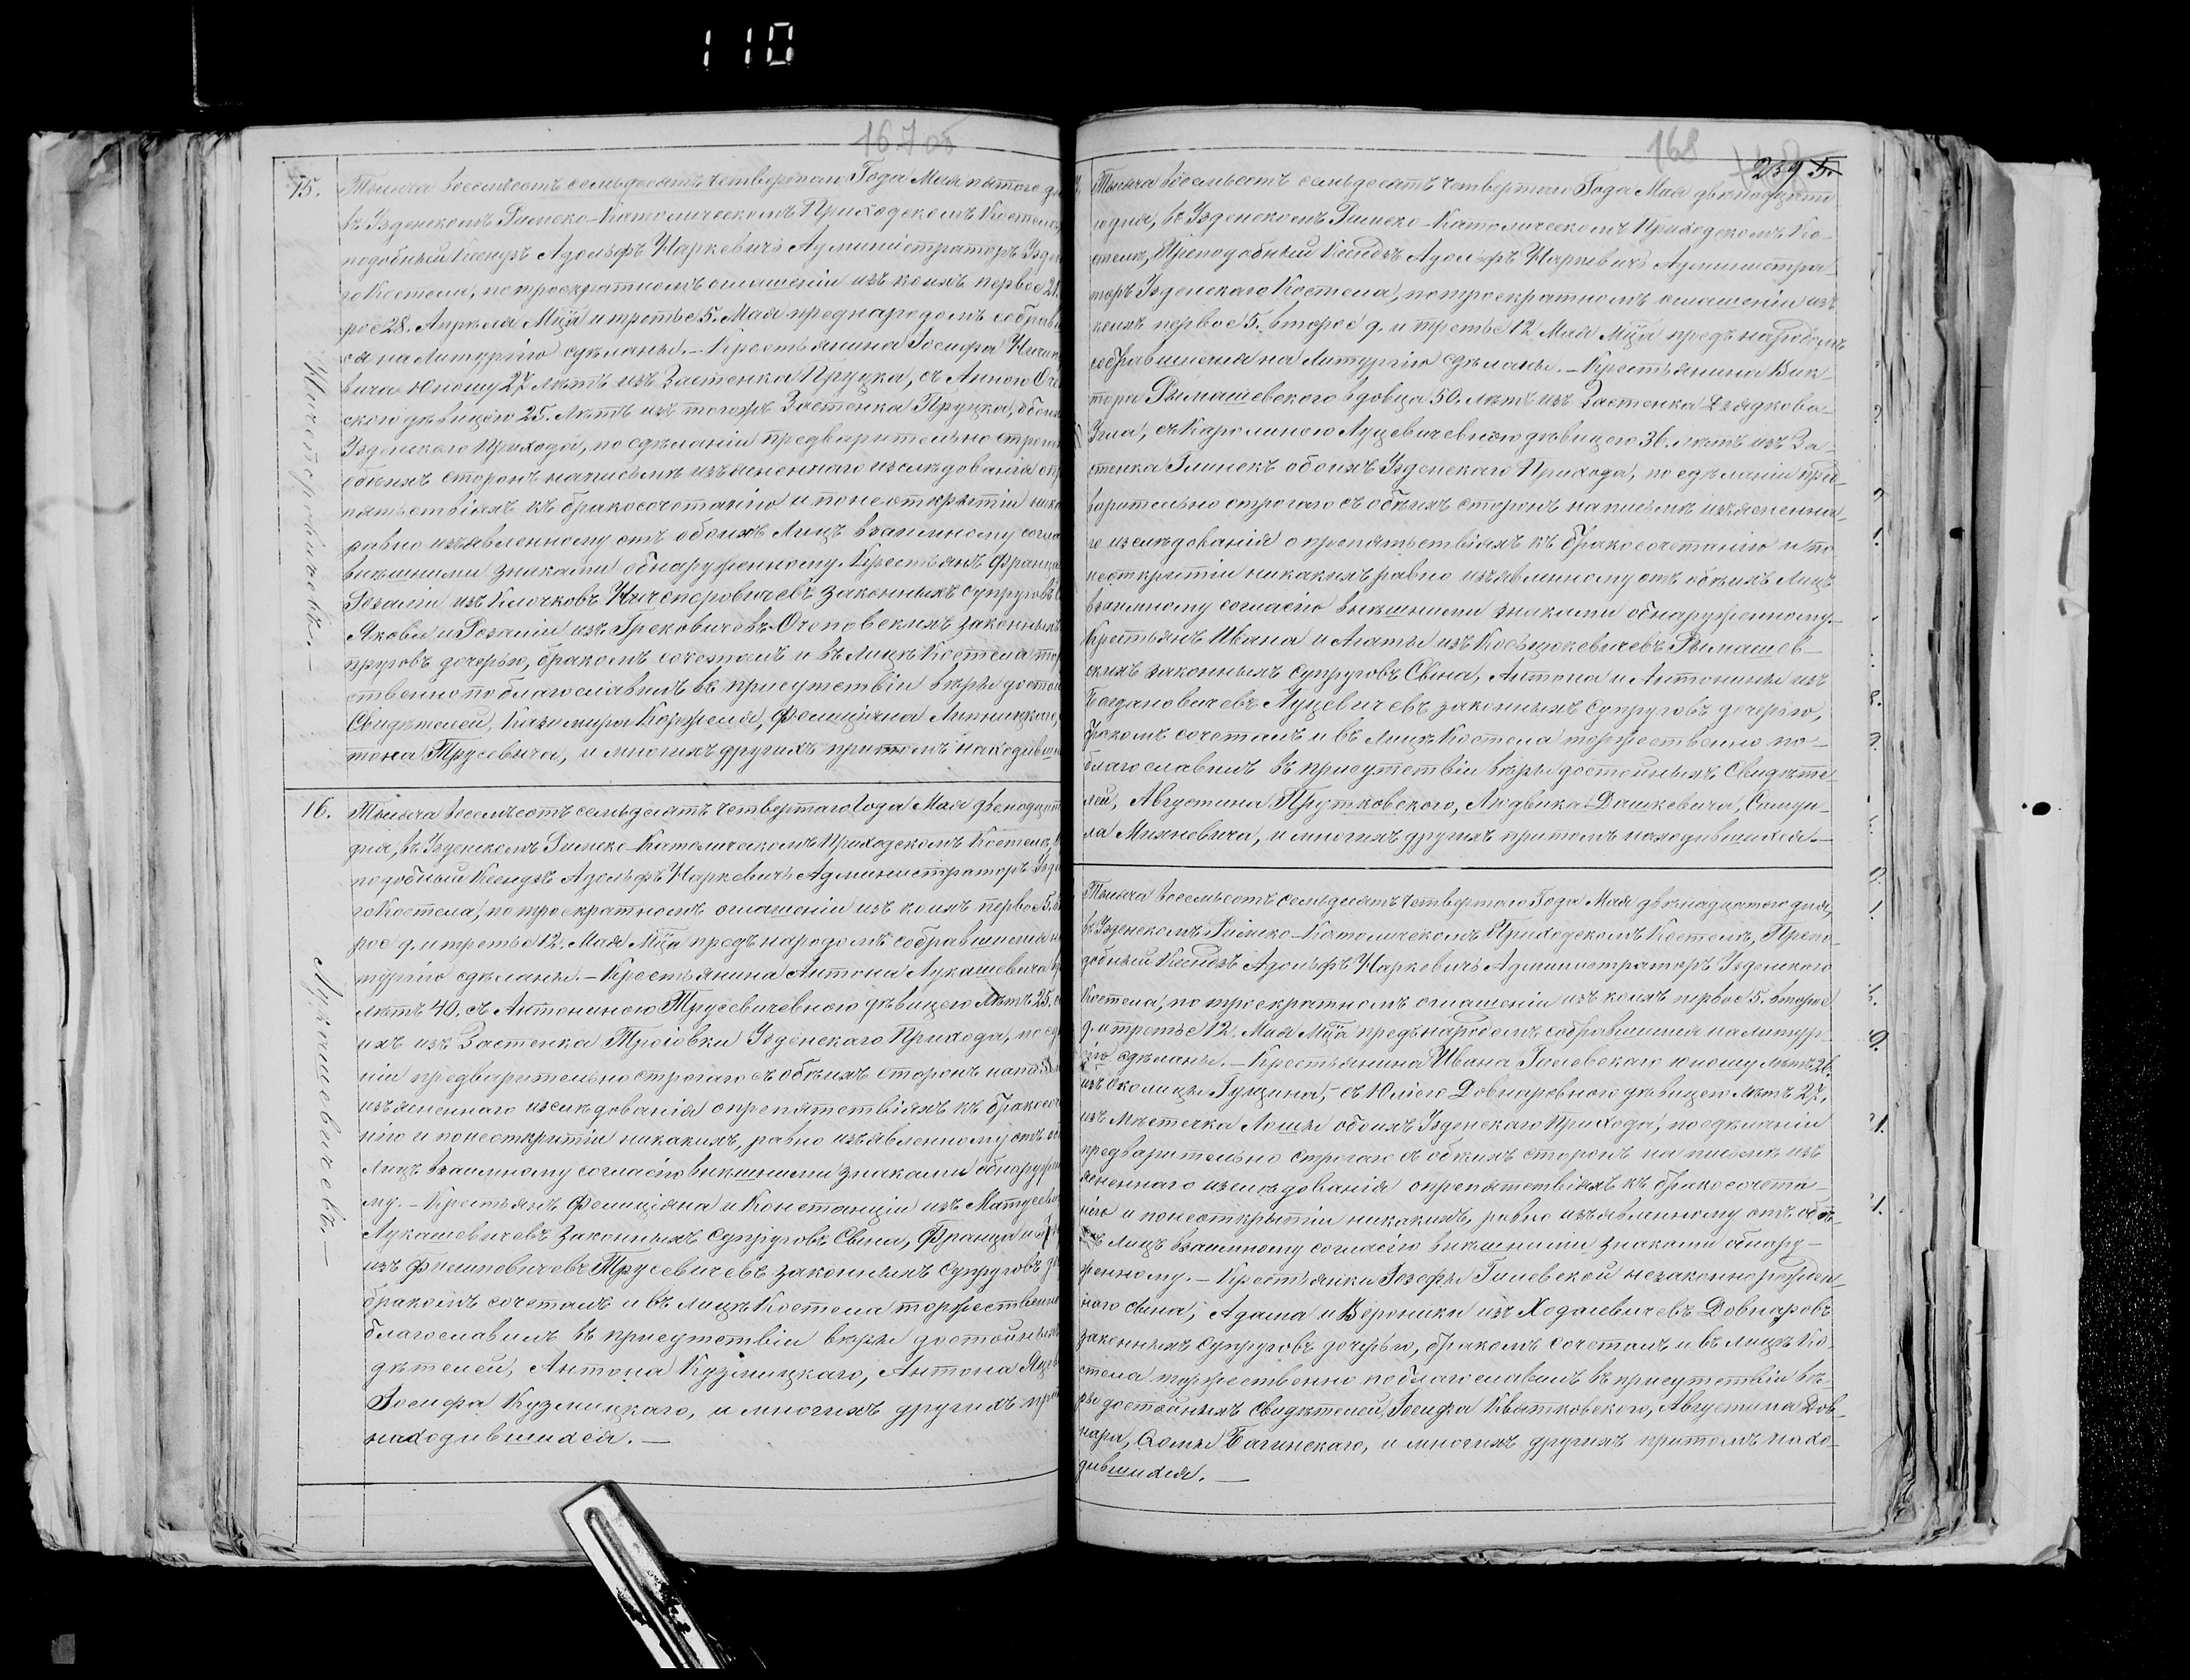 110
167 об
15.
Тысяча восемьсотъ семьдесятъ четвертаго Года Мая пятого д
въ Узденскомъ Римско-Католическомъ Приходскомъ Костел
подобный Ксендзъ Адольфъ Наркевичъ Администраторъ Узде
го Костела, по троекратномъ оглашеніи изъ коихъ первое 21.
рое 28. Апреля Мца и третье 5. Мая предъ народомъ собрав
ся на Литургію сдѣланы. – Крестьянина Іосифа
вича юношу 27 лѣтъ изъ Застенка Пруцка, съ Анною Оче
скою дѣвицею 25. Лѣтъ изъ тогожъ Застенка Пруцка, обоих
Узденского Прихода, по сдѣланіи предварительно строга
обѣихъ сторонъ написьмѣ изъясненнаго изслѣдованія о пр
пятьствіяхъ къ бракосочетанію и понеоткрытіи ника
равно изъявленному отъ обоихъ Лицъ взаимному согла
внѣшними знаками обнаруженному. Крестьянъ Франца
Розаліи изъ Клочковъ Ничепоровичевъ законныхъ супруговъ С
Якова и Розаліи изъ Грековичевъ Очеповскихъ законных
пруговъ дочерью, бракомъ сочеталъ и въ Лицѣ Костела тор
ственно поблагославилъ въ присутствіи вѣры достой
Свидѣтелей, Казимира Коржеля, Фелиціяна Липницкаго,
тона Трусевича, и многихъ другихъ притомъ находивш
Ничепоровичевъ. –
16.
Тысяча восемьсотъ семьдесятъ четвертаго Года Мая двенадцат
дня, въ Узденскомъ Римско-Католическомъ Приходскомъ Костелѣ,
подобный Ксендзъ Адольфъ Наркевичъ Администраторъ Узде
го Костела, по троекратномъ оглашеніи изъ коихъ первое 5.
рое 9. и третье 12. Мая Мца предъ народомъ собравшимся н
тургію сдѣланы. – Крестьянина Антона Лукашевича
лѣтъ 40. съ Антониною Трусевичевною дѣвицею Лѣтъ 25.
ихъ изъ Застенка Узденскаго Прихода, по сд
ніи предварительно строгаго съ обѣихъ сторонъ напись
изъясненнаго изслѣдованія о препятствіяхъ къ бракосо
нію и понеоткрытіи никакихъ, равно изъявленному отъ
Лицъ взаимному согласію внѣшними знаками обнаруже
му. – Крестьянъ Фелиціяна и Констанціи изъ
Лукашевичевъ Законныхъ Супруговъ Сына, Франца и
изъ Филиповичовъ Трусевичевъ законныхъ Супруговъ до
бракомъ сочеталъ и въ лицѣ Костела торжественно
благославилъ въ присутствіи вѣры достойных
дѣтелей, Антона Кузмицкаго, Антона
Іосифа Кузмицкаго, и многихъ другихъ при
находившихся. –
Лукашевичевъ –
168
239
Тысяча восемьсотъ семьдесятъ четвертаго Года Мая двенадцато
го дня, въ Узденскомъ Римско-Католическомъ Приходскомъ Ко-
стелѣ, Преподобный Ксендзъ Адольфъ Наркевичъ Администра-
торъ Узденскаго Костела, по троекратномъ оглашеніи изъ
коихъ первое 5. второе 9. и третье 12 Мая Мца предъ народомъ
собравшимся на Литургію сдѣланы. – Крестьянина Вик-
тора Рымашевского вдовца 50. лѣтъ изъ Застенка
съ Каролиною Луцевичевною дѣвицею 36. лѣтъ изъ За-
стенка Глинокъ обоихъ Узденскаго Прихода, по сдѣланіи пред-
варительно строгаго съ обѣихъ сторонъ написьмѣ изъясненна-
го изслѣдованія о препятьствіяхъ къ бракосочетанію и по
неоткрытіи никакихъ равно изъявленному отъ обѣихъ Лицъ
взаимному согласію внѣшними знаками обнаруженному. –
Крестьянъ Ивана и Агаты изъ Рымашев-
скихъ законныхъ супруговъ Сына, Антона и Антонины изъ
Богдановичевъ Луцевичевъ законныхъ супруговъ дочерью,
бракомъ сочеталъ и въ Лицѣ Костела торжественно по-
благославилъ въ присутствіи вѣры достойныхъ Свидѣте-
лей, Августина Прутковского, Людвика Дашкевича, Самуи-
ла и многихъ другихъ притомъ находившихся. –
Тысяча восемьсотъ семьдесятъ четвертаго Года Мая двѣнадцатого дня,
въ Узденскомъ Римско-Католическомъ Приходскомъ Костелѣ, Препо-
добный Ксендзъ Адольфъ Наркевичъ Администраторъ Узденского
Костела, по троекратномъ оглашеніи изъ коихъ первое 5. второе
9. и третье 12. Мая Мца предъ народомъ собравшимся на литур-
гію сдѣланы. – Крестьянина Ивана Гилевскаго юношу Лѣтъ 26.
изъ Околицы – съ Юліею Довнаровною дѣвицею Лѣтъ 27,
изъ Мѣстечка Лоши обоихъ Узденскаго Прихода, по сдѣланіи
предварительно строгаго съ обѣихъ сторонъ на письмѣ изъ
ясненнаго изслѣдованія о препятствіяхъ къ бракосочета-
нію и понеоткрытіи никакихъ, равно изъявленному отъ обѣ-
ихъ Лицъ взаимному согласію внѣшними знаками обнару-
женному. – Крестьянки Іозефы Гилевской незаконнорожден-
ного сына, Адама и Вероники изъ Ходасевичевъ Довнаровъ
законныхъ супруговъ дочерью, бракомъ сочеталъ и въ лицѣ Ко-
стела торжественно поблагославилъ въ присутствіи вѣ-
ры достойныхъ свидѣтелей, Іосифа Квятковского, Августина Дов-
нара, Фомы Багинскаго, и многихъ другихъ притомъ нахо-
дившихся. –